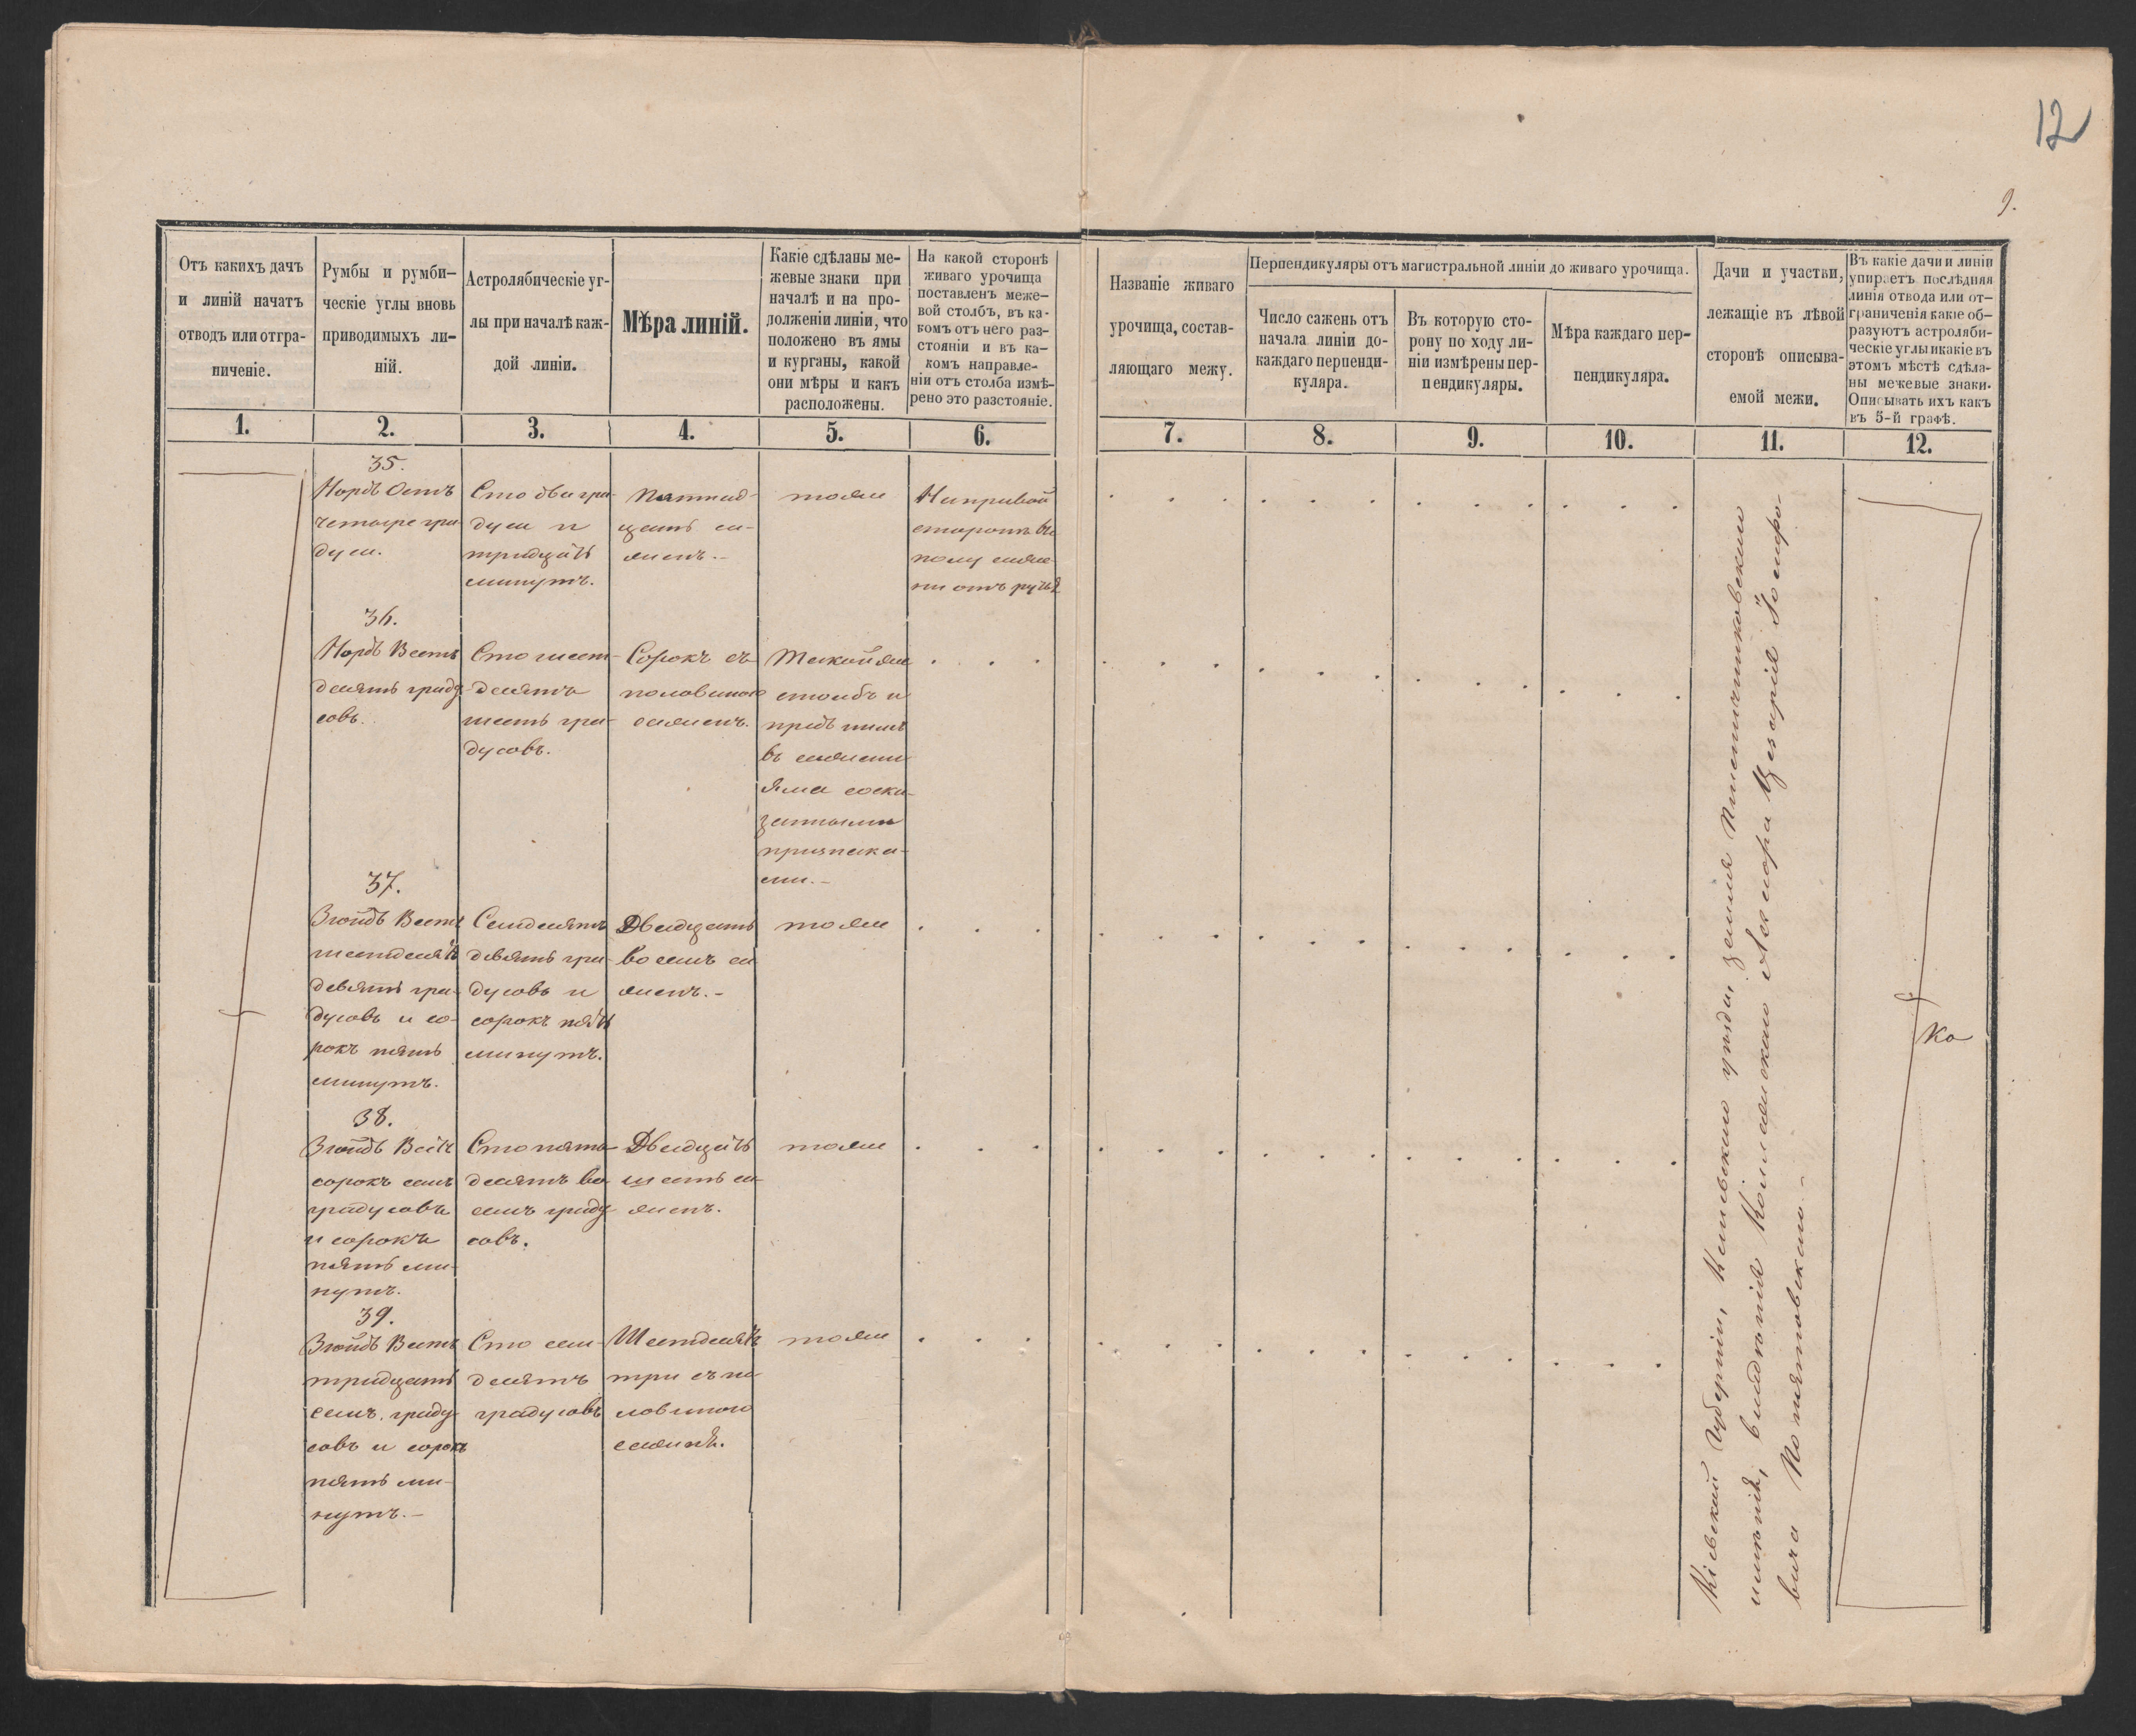 12
9.
Отъ какихъ дачъ
и линій начатъ
отводъ или отгра-
ниченіе.
Румбы и румби-
ческіе углы вновь
приводимыхъ ли-
ній.
Астролябическіе уг-
лы при началѣ каж-
дой линіи.
Мѣра линій.
Какіе сдѣланы ме-
жевые знаки при
началѣ и на про-
долженіи линіи, что
положено въ ямы
и курганы, какой
они мѣры и какъ
расположены.
На какой сторонѣ
живаго урочища
поставленъ меже-
вой столбъ, въ ка-
комъ отъ него раз-
стояніи и въ ка-
комъ направле-
ніи отъ столба измѣ-
рено это разстояніе.
Названіе живаго
урочища, состав-
ляющаго межу.
Перпендикуляры отъ магистральной линіи до живаго урочища.
Число сажень отъ
начала линіи до-
каждаго перпенди-
куляра.
Въ которую сто-
рону по ходу ли-
ніи измѣрены пер-
пендикуляры.
Мѣра каждаго пер-
пендикуляра.
Дачи и участки,
лежащіе въ лѣвой
сторонѣ описыва-
емой межи.
Въ какіе дачи и линіи
упираетъ послѣдняя
линія отвода или от-
граниченія какіе об-
разуютъ астроляби-
ческіе углы и какіе въ
этомъ мѣстѣ сдѣла-
ны межевые знаки.
Описывать ихъ какъ
въ 5-й графѣ.
1.
2.
3.
4.
5.
6.
7.
8.
9.
10.
11.
12.
35.
Нордъ Остъ
четыре гра-
дуса.
Сто два гра-
дуса и
тридцать
минутъ.
Пятнад-
цать са-
женъ.-
тоже
На правой
сторонѣ въ
полу саже-
ни отъ ручья
36.
Нордъ Вестъ
десять граду-
совъ.
Сто шест-
десятъ
шесть гра-
дусовъ.
Сорокъ съ
половиною
саженъ.
Такой же
столбъ и
предъ нимъ
въ сажени
яма со ска-
занными
признака-
ми.-
37.
Зюйдъ Вестъ
шестдесятъ
девять гра-
дусовъ и со-
рокъ пять
минутъ.
Семдесятъ
девять гра-
дусовъ и
сорокъ пять
минутъ.
Двадцать
восемъ са-
женъ.-
тоже
38.
Зюйдъ Вестъ
сорокъ семь
градусовъ
и сорокъ
пять ми-
нутъ.
Сто пять-
десятъ во-
семь граду-
совъ.
Двадцать
шесть са-
женъ.
тоже
39.
Зюйдъ Вестъ
тридцать
семь граду-
совъ и сорокъ
пять ми-
нутъ.-
Сто сем-
десятъ
градусовъ
Шестдесятъ
три съ по-
ловиною
сажени.
тоже
Кіевской Губерніи, Каневскаго уѣзда, земля
имѣнія, владѣнія Аксіора Цезарія
вича Понятовскаго.-
Ка